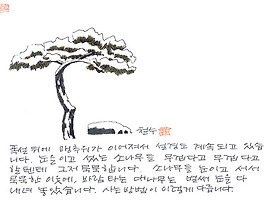 폭설 뒤에 맹추위가 이어져서 설경도 계속되고 있습
니다. 눈을 이고 있는 소나무들 무겁다고 무겁다고
할텐데 그저 묵묵합니다. 소나무들 눈이고 서서
묵묵한 이웃에, 바람 타는 대나무는 벌써 눈을 다
내려 놓았습니다. 사는 방법이 이렇게 다릅니다.